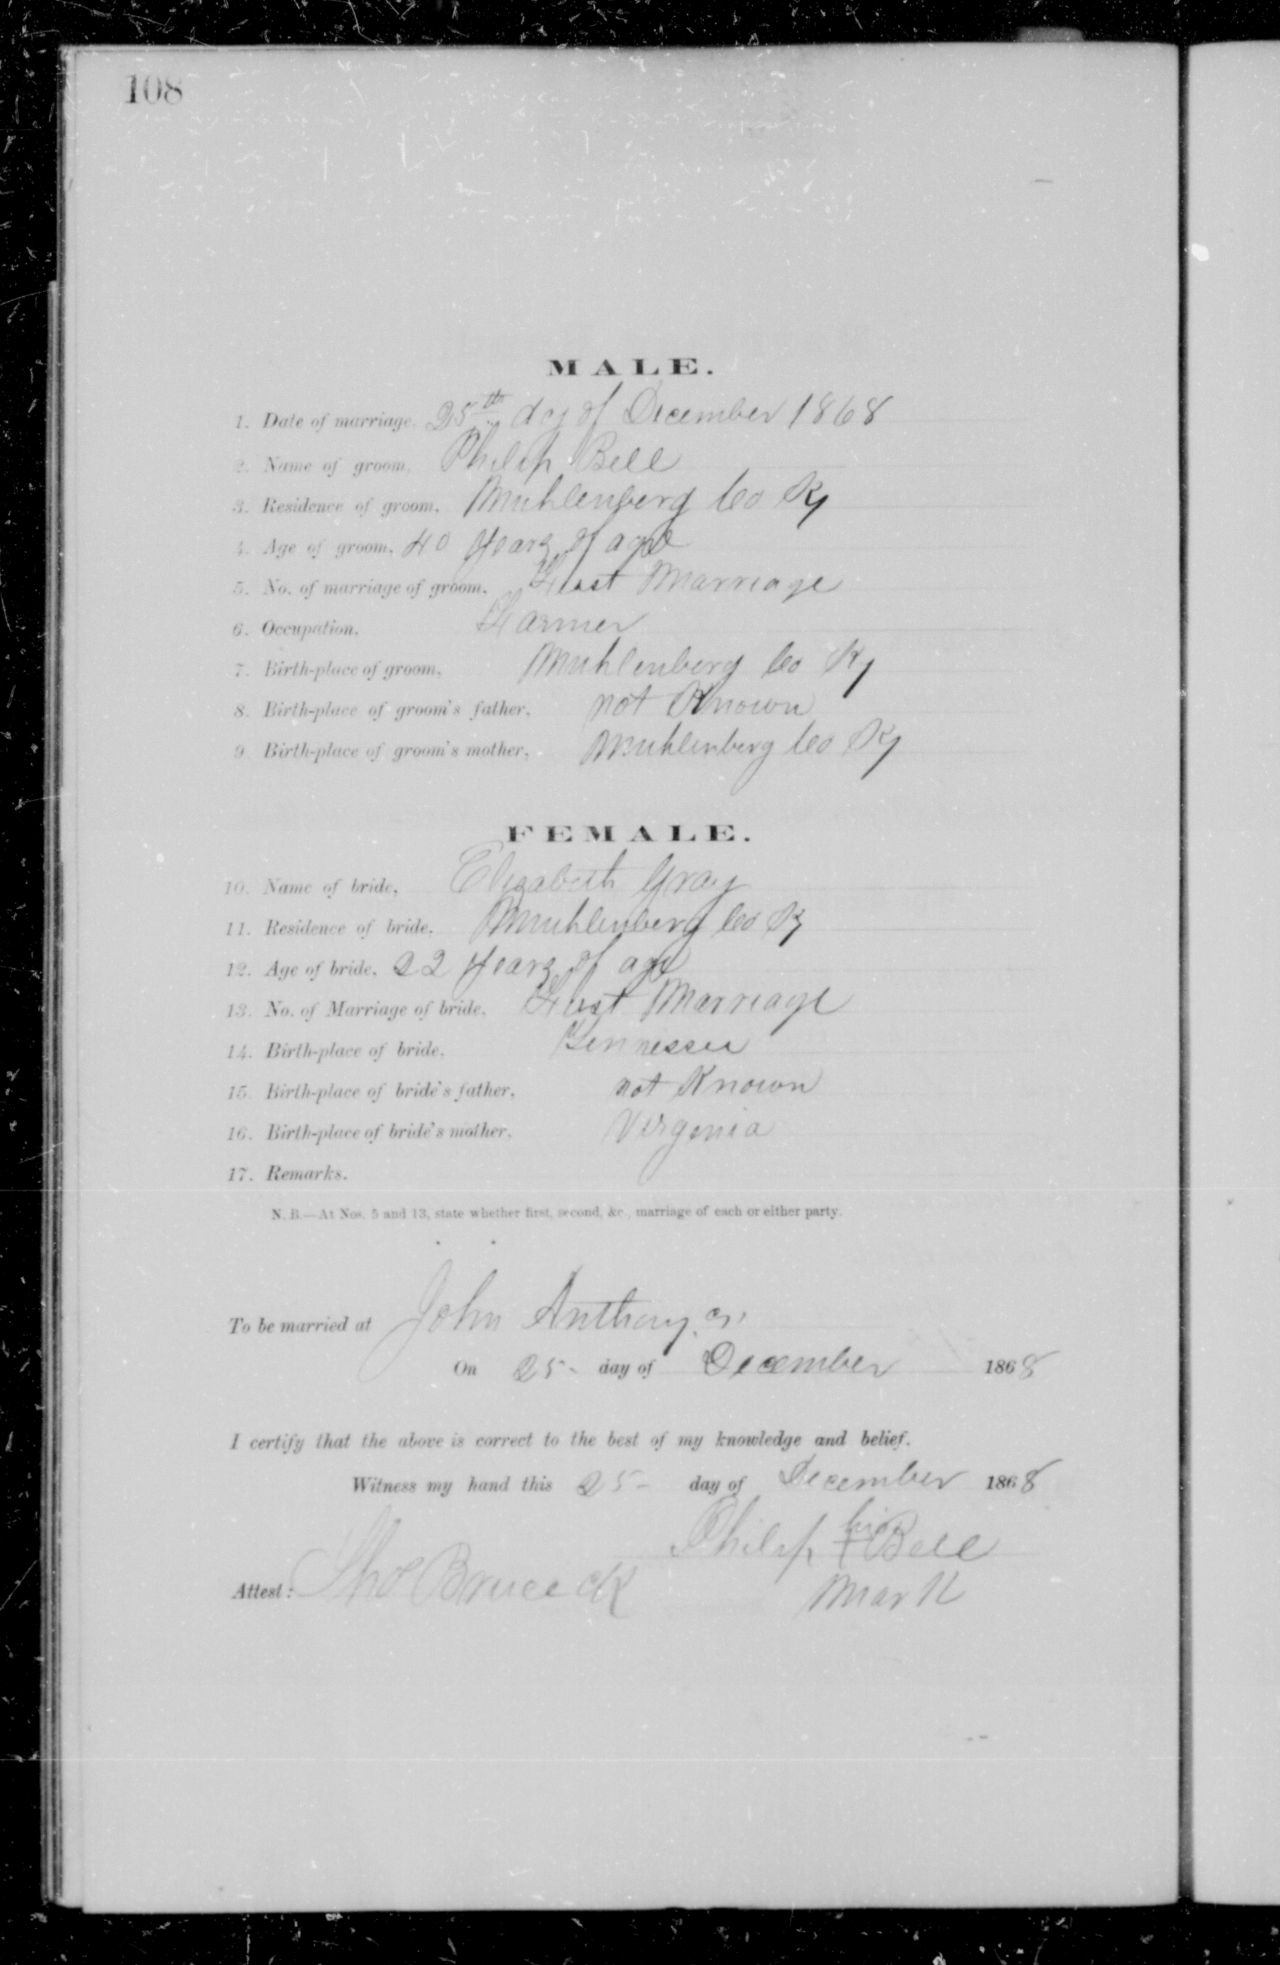 108
MALE.
1. Date of marriage, 25th day of December 1868
2. Name of groom, Philip Bell
3. Residence of groom, Muhlenberg Co Ky
4. Age of groom, 40 years of age
5. No. of marriage of groom, First Marriage
6. Occupation, Farmer
7. Birth-place of groom, Muhlenberg Co Ky
8. Birth-place of groom's father, not Known
9. Birth-place of groom's mother, Muhlenberg Co Ky
FEMALE.
10. Name of bride, Elizabeth Gray
11. Residence of bride, Muhlenberg Co Ky
12. Age of bride, 22 years of age
13. No. of Marriage of bride, First Marriage
14. Birth-place of bride, Tennessee
15. Birth-place of bride's father, not Known
16. Birth-place of bride's mother, Virginia
17. Remarks.
N. B.—At Nos. 5 and 13, state whether first, second, &c., marriage of each or either party.
To be married at John Anthony
On 25- day of December 1868
I certify that the above is correct to the best of my knowledge and belief.
Witness my hand this 25- day of December 1868
his
Philip + Bell
Attest: Tho Bruce ck
mark